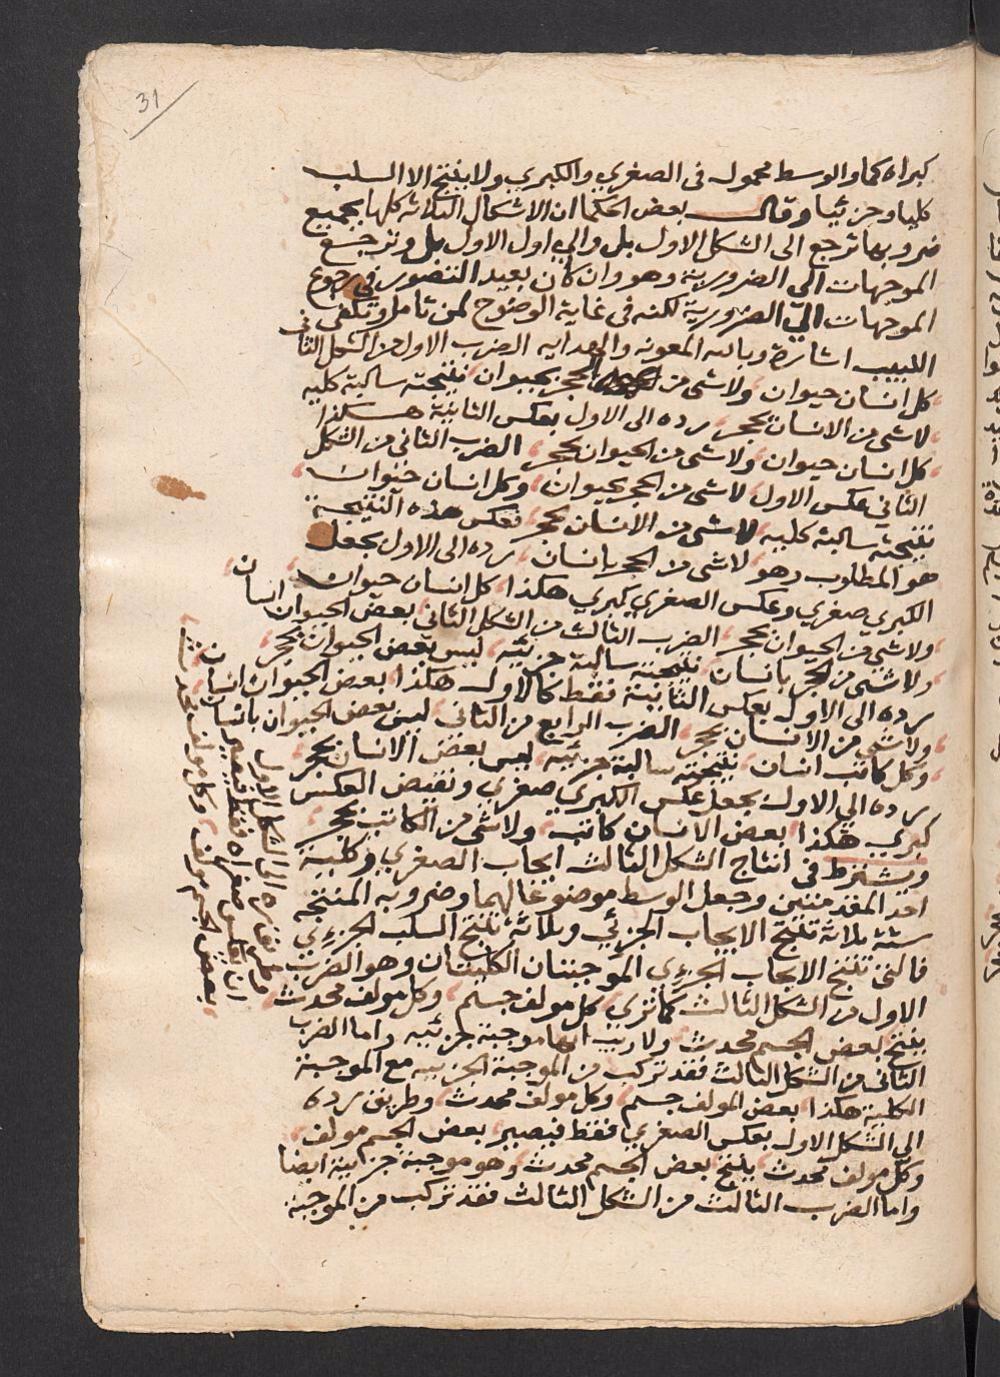 31
كبراه كما والوسط محمول فى الصغري والكبري ولا ينتج الا السلب
كليا وجزئيا وقال بعض الحكما ان الاشكال الثلاثه كلها بجميع
ضروبها ترجع الى الشكل الاول بل والي اول الاول بل وترجع
الموجهات الى الضرورية وهو وان كان بعيد التصور فى رجوع
الموجهات الي الضرورية لكنه فى غاية الوضوح لمن تامل وتكفى
اللبيب اشارة وبالله المعونه والهدايه الضرب الاول من الشكل الثانى
كل انسان حيوان ولا شى من الحجر بحيوان نتيجته سالبة كليه
لا شى من الانسان بحجر رده الى الاول بعكس الثانية هكذا
كل انسان حيوان ولا شى من الحيوان بحجر الضرب الثانى من الشكل
الثاني عكس الاول لا شى من الحجر بحيوان وكل انسان حيوان
نتيجته سالبة كليه لا شى من الانسان بحجر تعكس هذه النتيجة
هو المطلوب وهو لا شى من الحجر بانسان رده الى الاول بجعل
الكبري صغري وعكس الصغري كبري هكذا كل انسان حيوان
ولا شى من الحيوان بحجر الضرب الثالث من الشكل الثانى بعض الحيوان انسان
ولا شى من الحجر بانسان نتيجته سالبة جزئيه ليس بعض الحيوان بحجر
رده الى الاول بعكس الثانية فقط كالاول هكذا بعض الحيوان انسان
ولا شى من الانسان بحجر الضرب الرابع من الثانى ليس بعض الحيوان بانسان
وكل كاتب انسان نتيجته سالبة جزئيه ليس بعض الانسان بحجر
رده الي الاول بجعل عكس الكبري صغري ونقيض العكس
كبري هكذا بعض الانسان كاتب ولا شى من الكاتب بحجر
ويشترط فى انتاج الشكل الثالث ايجاب الصغري وكلية
احد المقدمتين وجعل الوسط موضوعا لهما وضروبه المنتجه
ستة ثلاثة تنتج الايجاب الجزئي وثلاثة تنتج السلب الجزءي
فالتى تنتج الايجاب الجزءي الموجبتان الكليتان وهو الضرب
الاول من الشكل الثالث كما تري كل مولف جسم وكل مولف محدث
ينتج بعض الجسم محدث ولا ريب انها موجبة جزئيه واما الضرب
الثانى من الشكل الثالث فقد تركب من الموجبة الجزييه مع الموجبة
الكلية هكذا بعض المولف جسم وكل مولف محدث وطريق رده
الى الشكل الاول بعكس الصغري فقط فيصير بعض الجسم مولف
وكل مولف محدث ينتج بعض الجسم محدث وهو موجبة جزيية ايضا
واما الضرب الثالث من الشكل الثالث فقد تركب من الموجبة
رده الى الشكل الاول
ان تعكس صغراه فقط فيصير
بعض الجسم مولف وكل مولف محدث